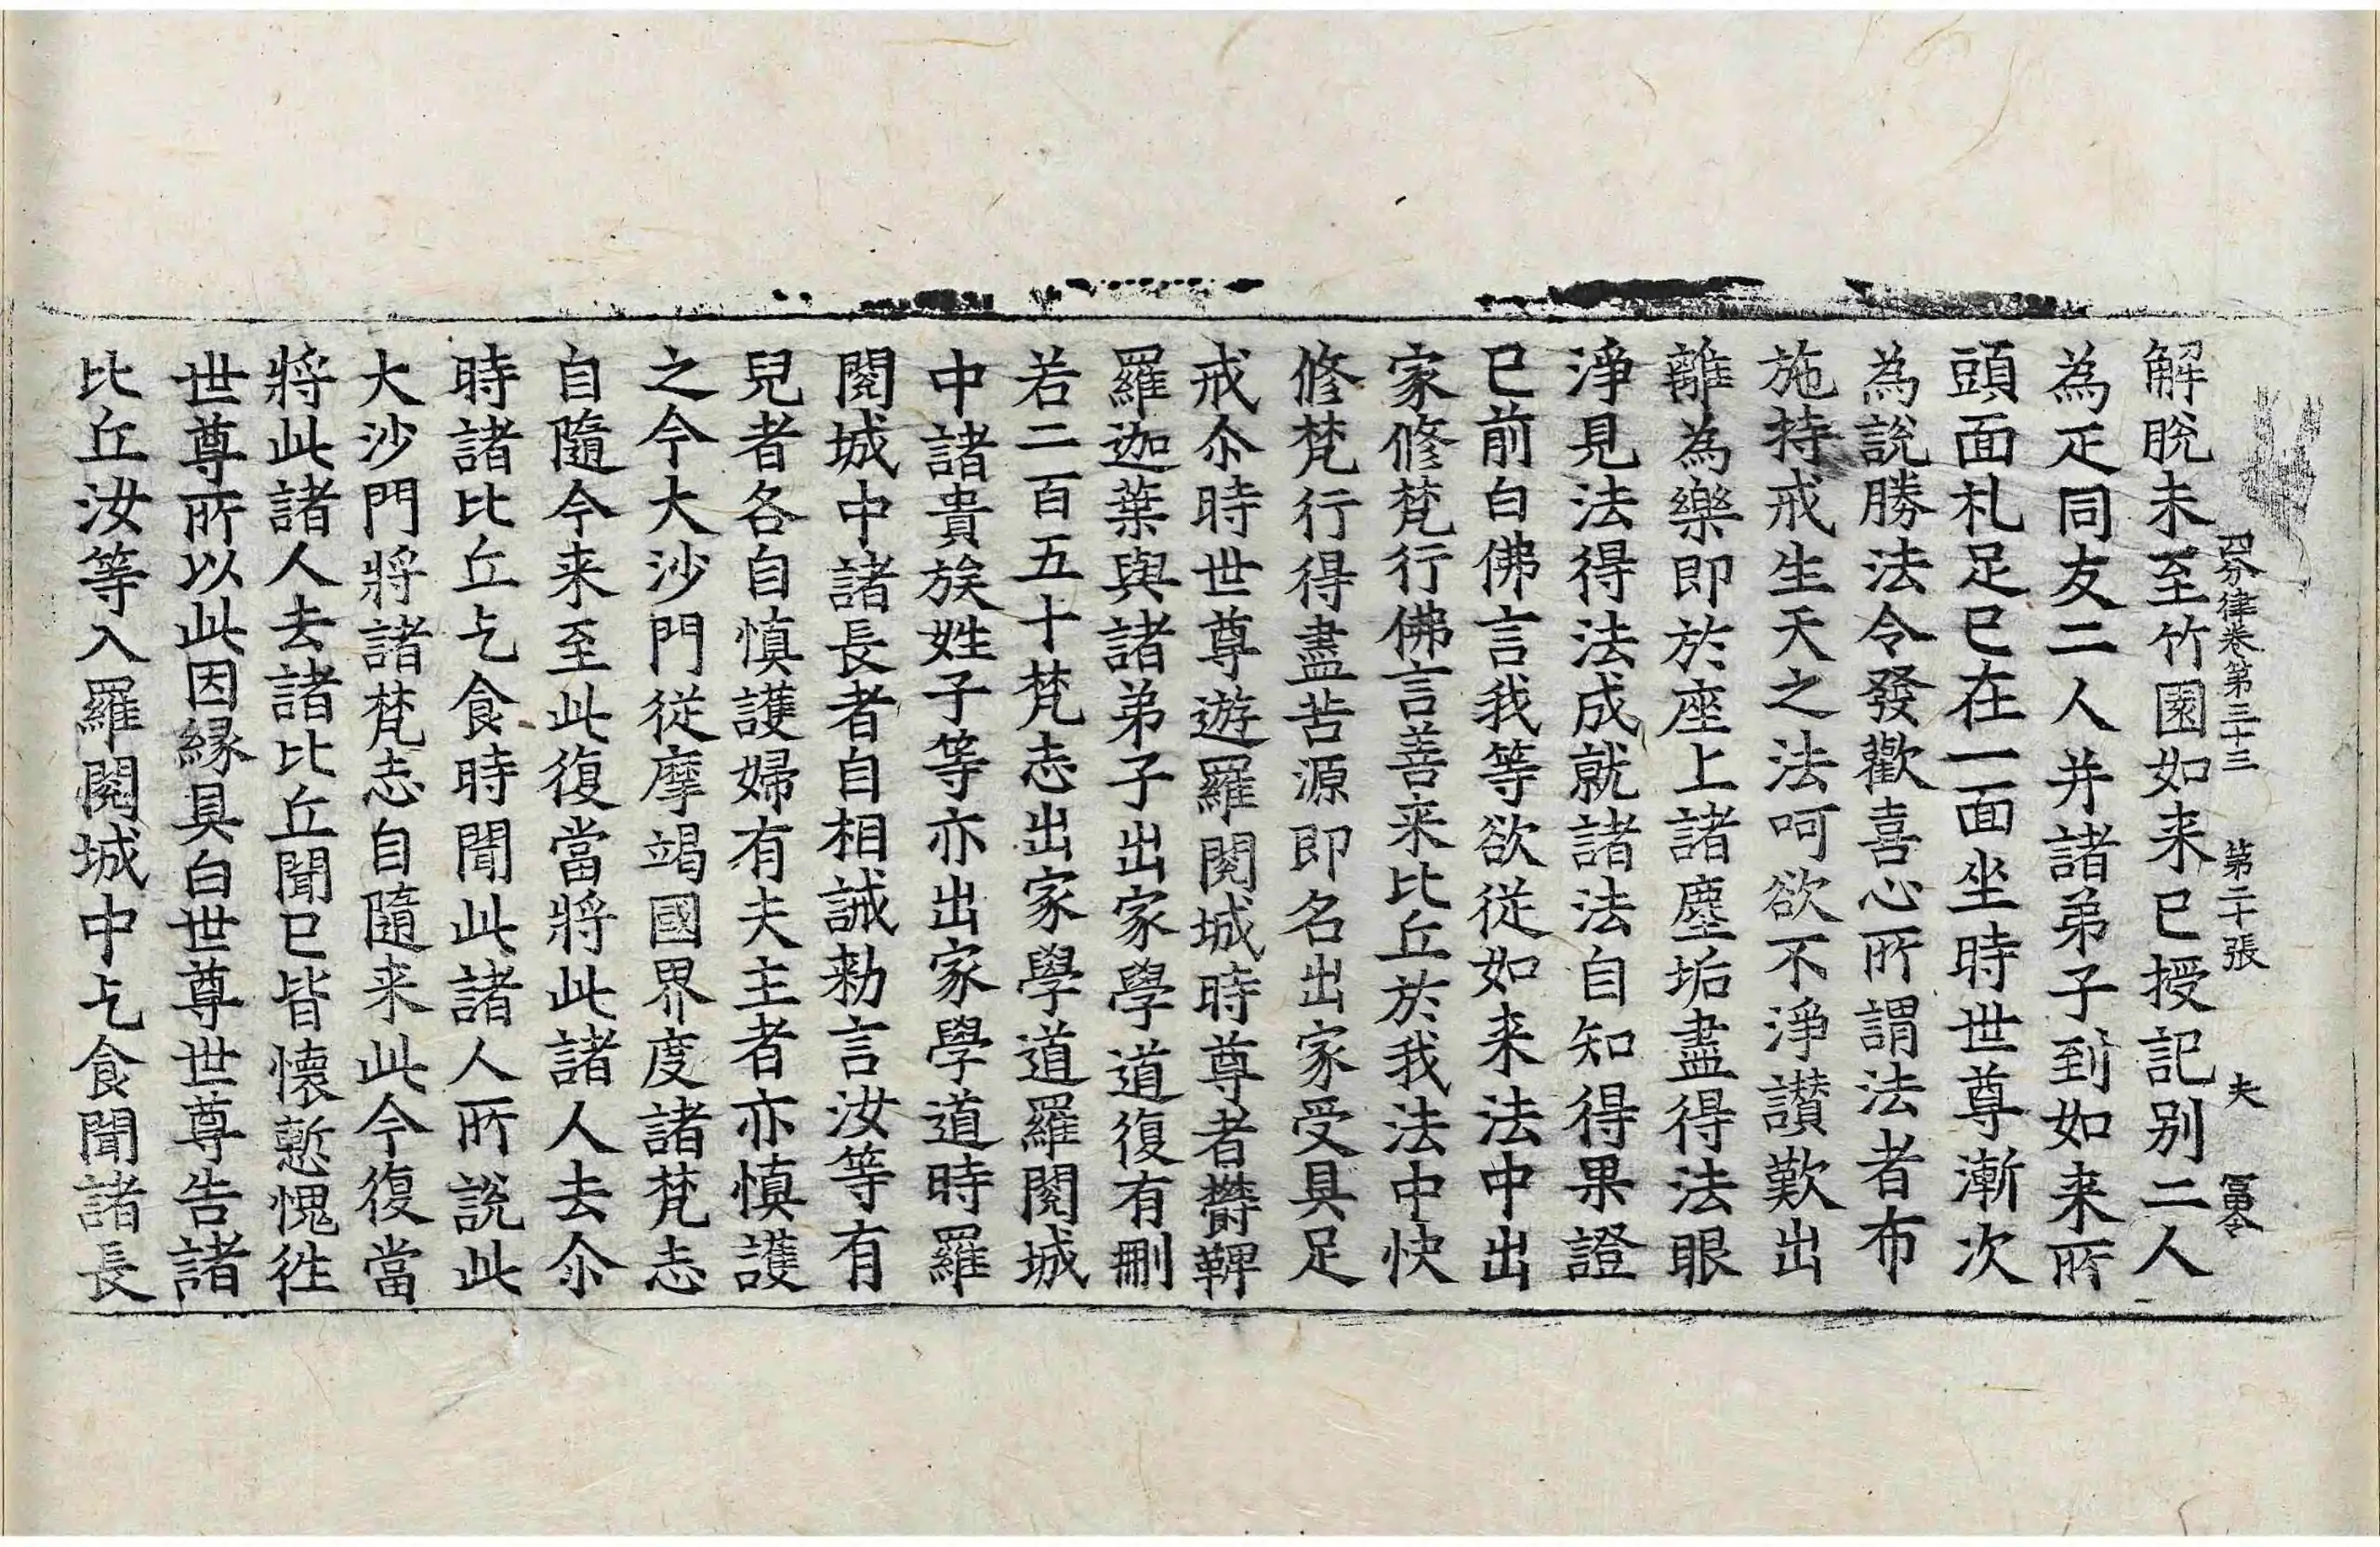 四分律卷第三十三 第二十張 夫
解脫未至竹園如来已授記别二人
為疋同友二人并諸弟子到如来所
頭面札足已在一面坐時世尊漸次
為說勝法令發歡喜心所謂法者布
施持戒生天之法呵欲不淨讃歎出
離為樂即於座上諸塵垢盡得法眼
淨見法得法成就諸法自知得果證
已前白佛言我等欲從如来法中出
家修梵行佛言善来比丘於我法中快
修梵行得盡苦源即名出家受具足
戒尒時世尊遊羅閱城時尊者欝鞞
羅迦葉與諸弟子出家學道復有刪
若二百五十梵志出家學道羅閱城
中諸貴族姓子等亦出家學道時羅
閱城中諸長者自相誡勑言汝等有
兒者各自慎護婦有夫主者亦慎護
之今大沙門從摩竭國界度諸梵志
自隨今来至此復當將此諸人去尒
時諸比丘乞食時聞此諸人所說此
大沙門將諸梵志自隨来此今復當
將此諸人去諸比丘聞已皆懷慙愧徃
世尊所以此因縁具白世尊世尊告諸
比丘汝等入羅閱城中乞食聞諸長